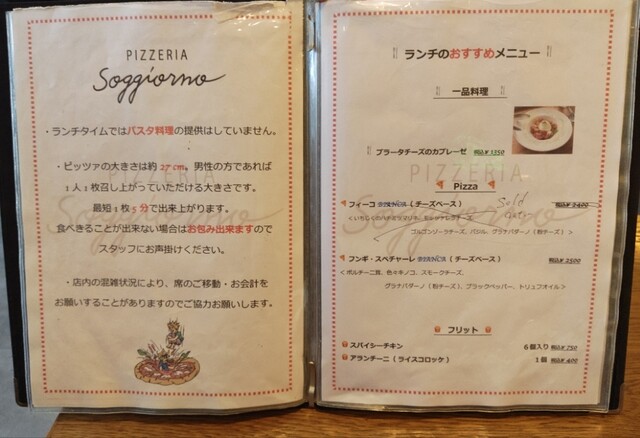 PIZZERIA
Soggiorno
・ランチタイムではパスタ料理の提供はしていません。
・ピッツァの大きさは約27cm。男性の方であれば
1人1枚召し上がっていただける大きさです。
最短1枚5分で出来上がります。
食べきることが出来ない場合はお包み出来ますので
スタッフにお声掛けください。
・店内の混雑状況により、席のご移動・お会計を
お願いすることがありますのでご協力お願いします。
ランチのおすすめメニュー
一品料理
ブラータチーズのカプレーゼ 税込¥1350
Pizza
フィーコ BIANCA(チーズベース) Sold out
ゴルゴンゾーラチーズ、バジル、グラナパダーノ(粉チーズ)>
フンギ・スペチャーレ BIANCA(チーズベース) 税込¥2500
<ポルチーニ茸、色々キノコ、スモークチーズ、
グラナパダーノ(粉チーズ)、ブラックペッパー、トリュフオイル>
フリット
スパイシーチキン 6個入り 税込¥750
アランチーニ(ライスコロッケ) 1個 税込¥400